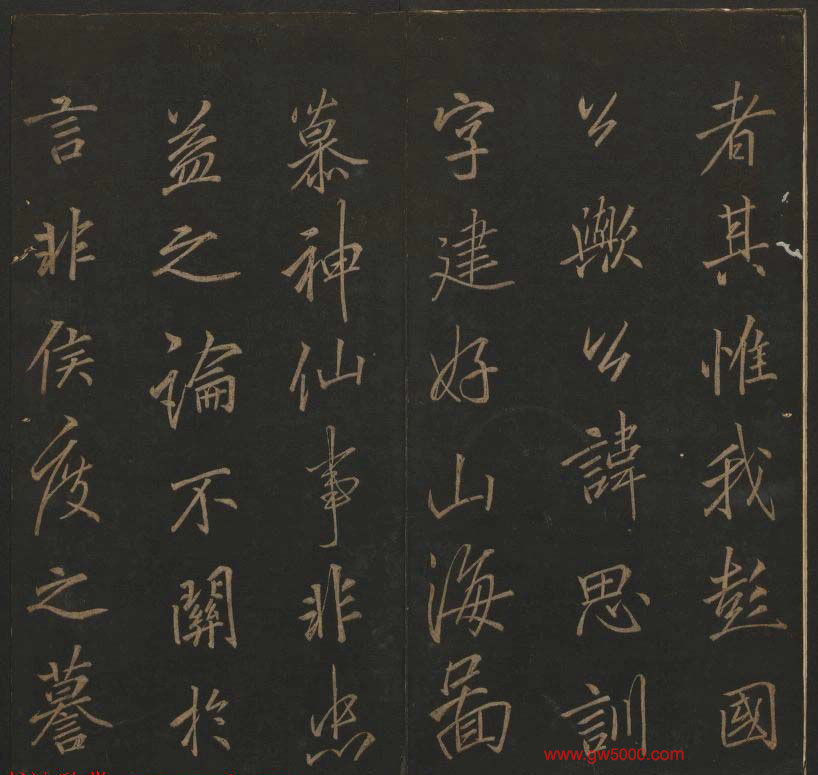 者其惟我彭國
公歟公諱思訓
字建好山海圖
慕神仙事非忠
益之論不關於
言非侯度之謩
www.gw5000.com